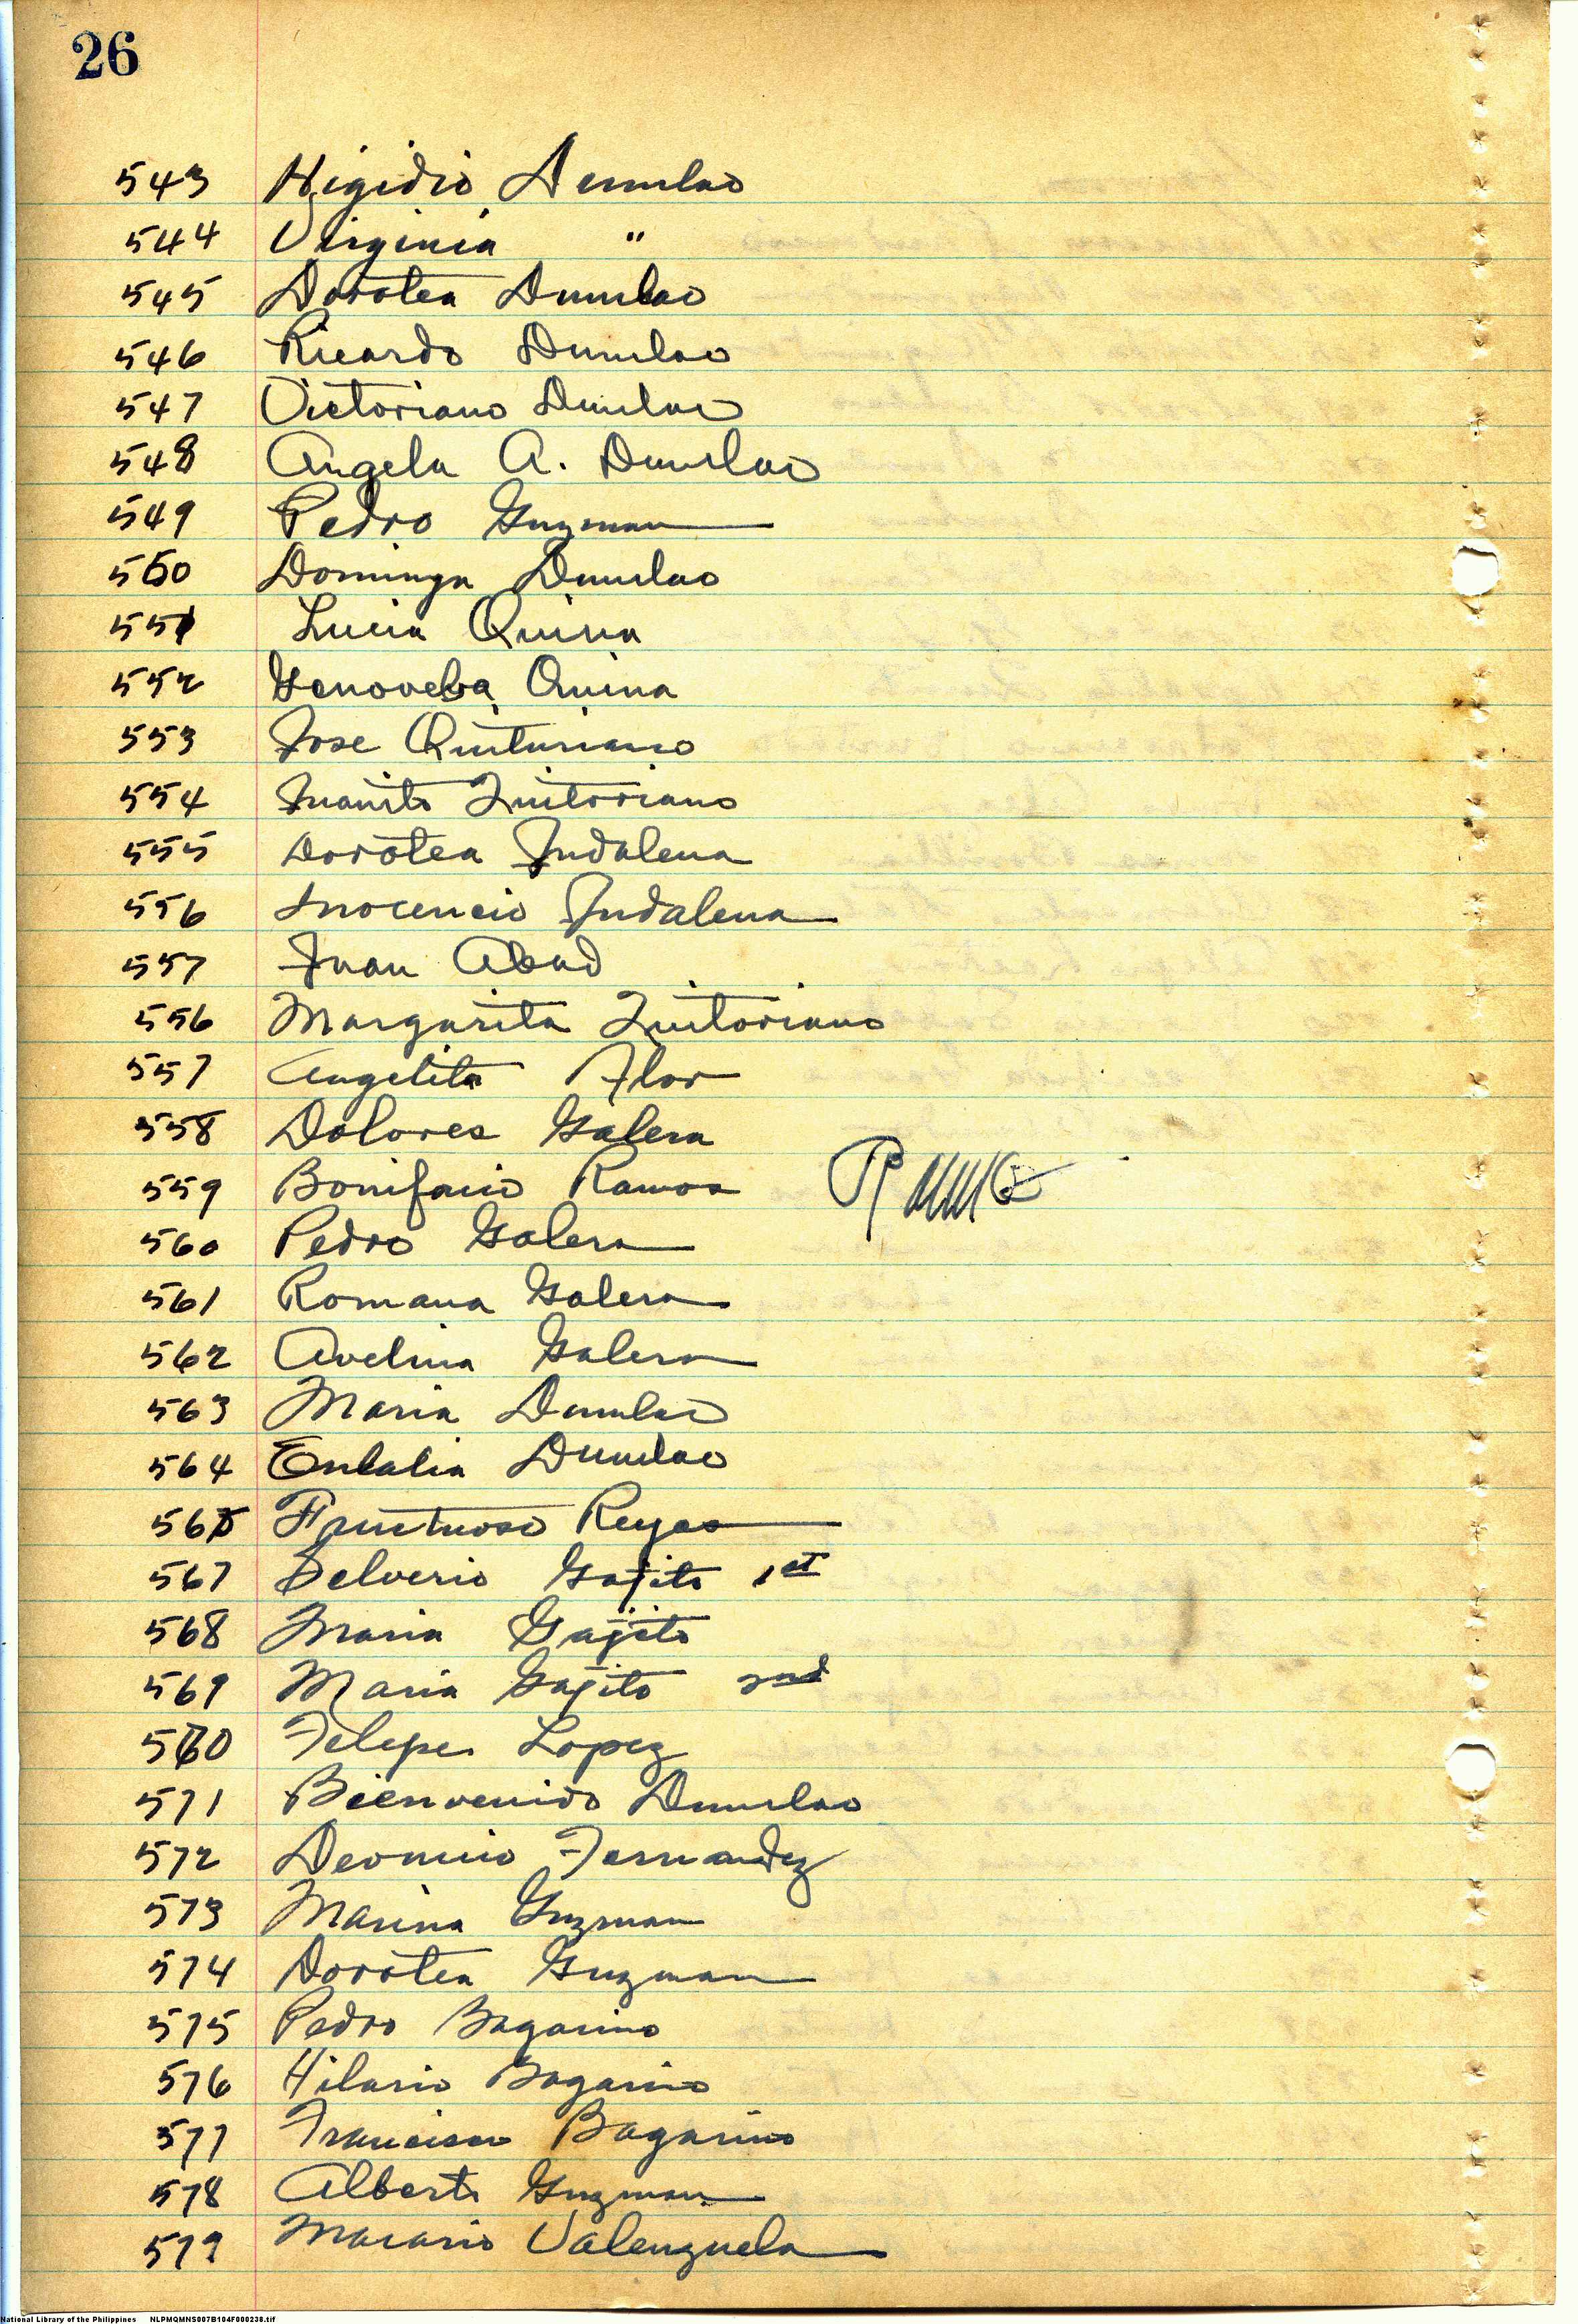 26
543 Higidio Dumlao
544 Virginia "
545 Dorotea Dumlao
546 Ricardo Dumlao
547 Victoriano Dumlao
548 Angela A. Dumlao
549 Pedro Guzman
550 Dominga Dumlao
551 Lucia Quina
552 Genoveba Quina
553 Jose Quituriano
554 Juanito Quitoriano
555 Dorotea Indalena
556 Inocencio Indalena
557 Juan Abad
556 Margarita Quitoriano
557 Angelita Flor
558 Dolores Galera
559 Bonifacio Ramos
560 Pedro Galera
561 Romana Galera
562 Avelina Galera
563 Maria Dumlao
564 Eulalia Dumlao
565 Fructuoso Reyes
567 Selverio Gajito 1st
568 Maria Gajito
569 Maria Gajito 2nd
570 Felepe Lopez
571 Bienvenido Dumlao
572 Deonicio Fernandez
573 Marina Guzman
574 Dorotea Guzman
575 Pedro Bagarino
576 Hilario Bagarino
577 Francisco Bagarino
578 Alberto Guzman
579 Macario Valenzuela
National Library of the Philippines NLPMQMNS007B104F000238.tif